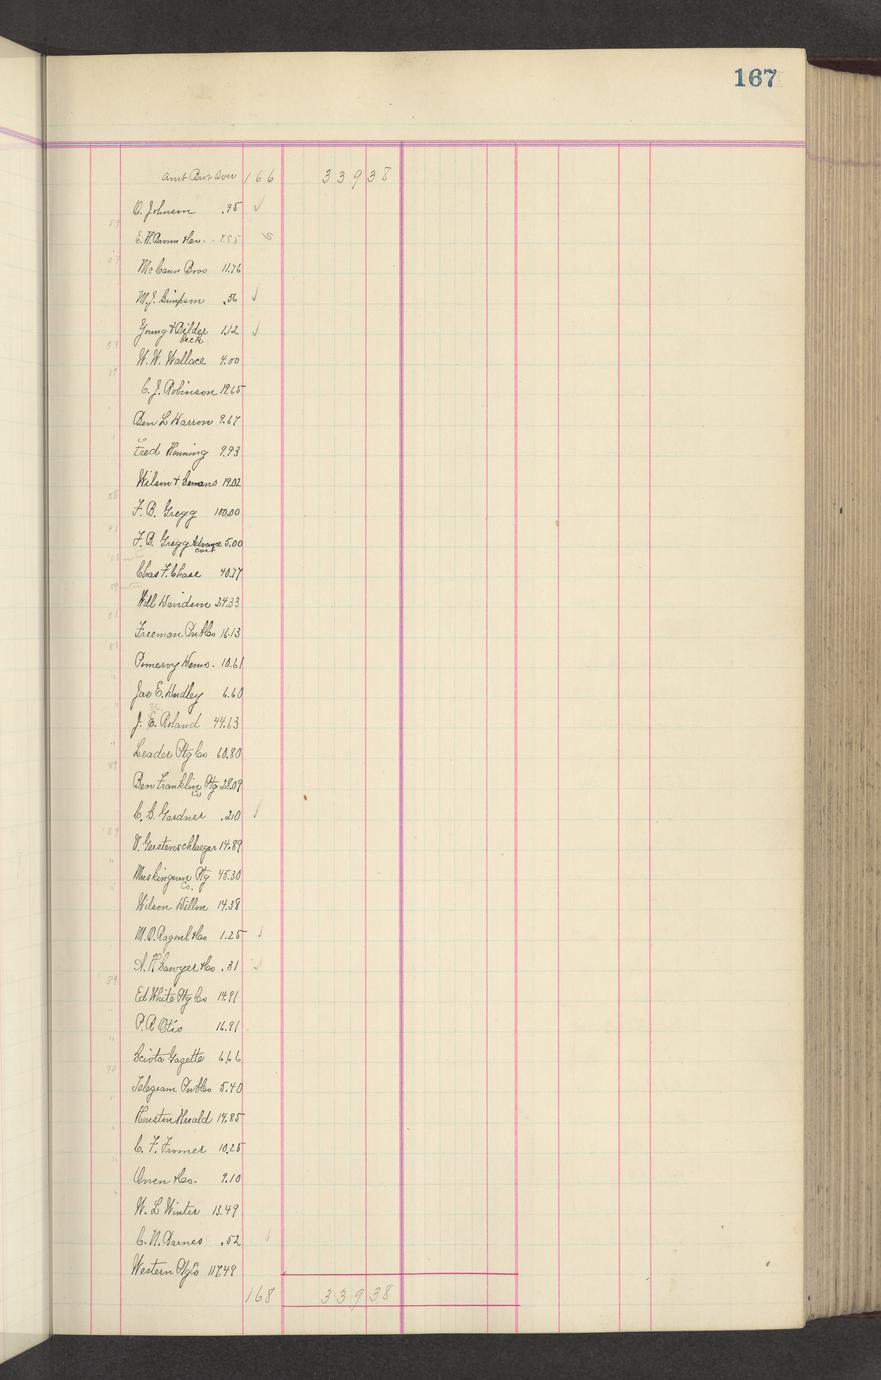 167
Amt Brot Over 166 339 38
O. Johnson .95 ✓
E. H. & Co.
McCann Bros 11.76
M. J. Simpson .56 ✓
Young & Bilder 1.12 ✓
beck
W. W. Wallace 4.00
C. J. Robinson 19.65
Ben L Harron 9.67
Fred Henning 9.93
Wilson & Semans 19.02
F. B. Gregg 100.00
F. B. Gregg Advance 5.00
cost
Chas F. Chase 40.77
Will Davidson 24.33
Freeman Pub Co 16.13
Pomeroy Demo. 10.61
Jas E. Hindley 6.60
J. E. Roland 44.63
Leader Ptg Co 60.80
Ben Franklin Ptg 28.09
Co
C. S. Gardner .20 ✓
V. Gerstenschlaeger 14.89
Muskingum Ptg 45.30
Co.
Wilson Dillon 14.38
M. O. & Co 1.25 ✓
A. H Sawyer & Co .31 ✓
Ed White Ptg Co 14.91
P. R Otis 16.91
Sciota Gazette 6.66
Telegram Pub Co 5.40
Houston Herald 14.85
C. F. 10.25
Owen & Co. 9.10
W. L Winter 13.49
C. N. Barnes .52 ✓
Western Ptg Co 117.49
168 339 38